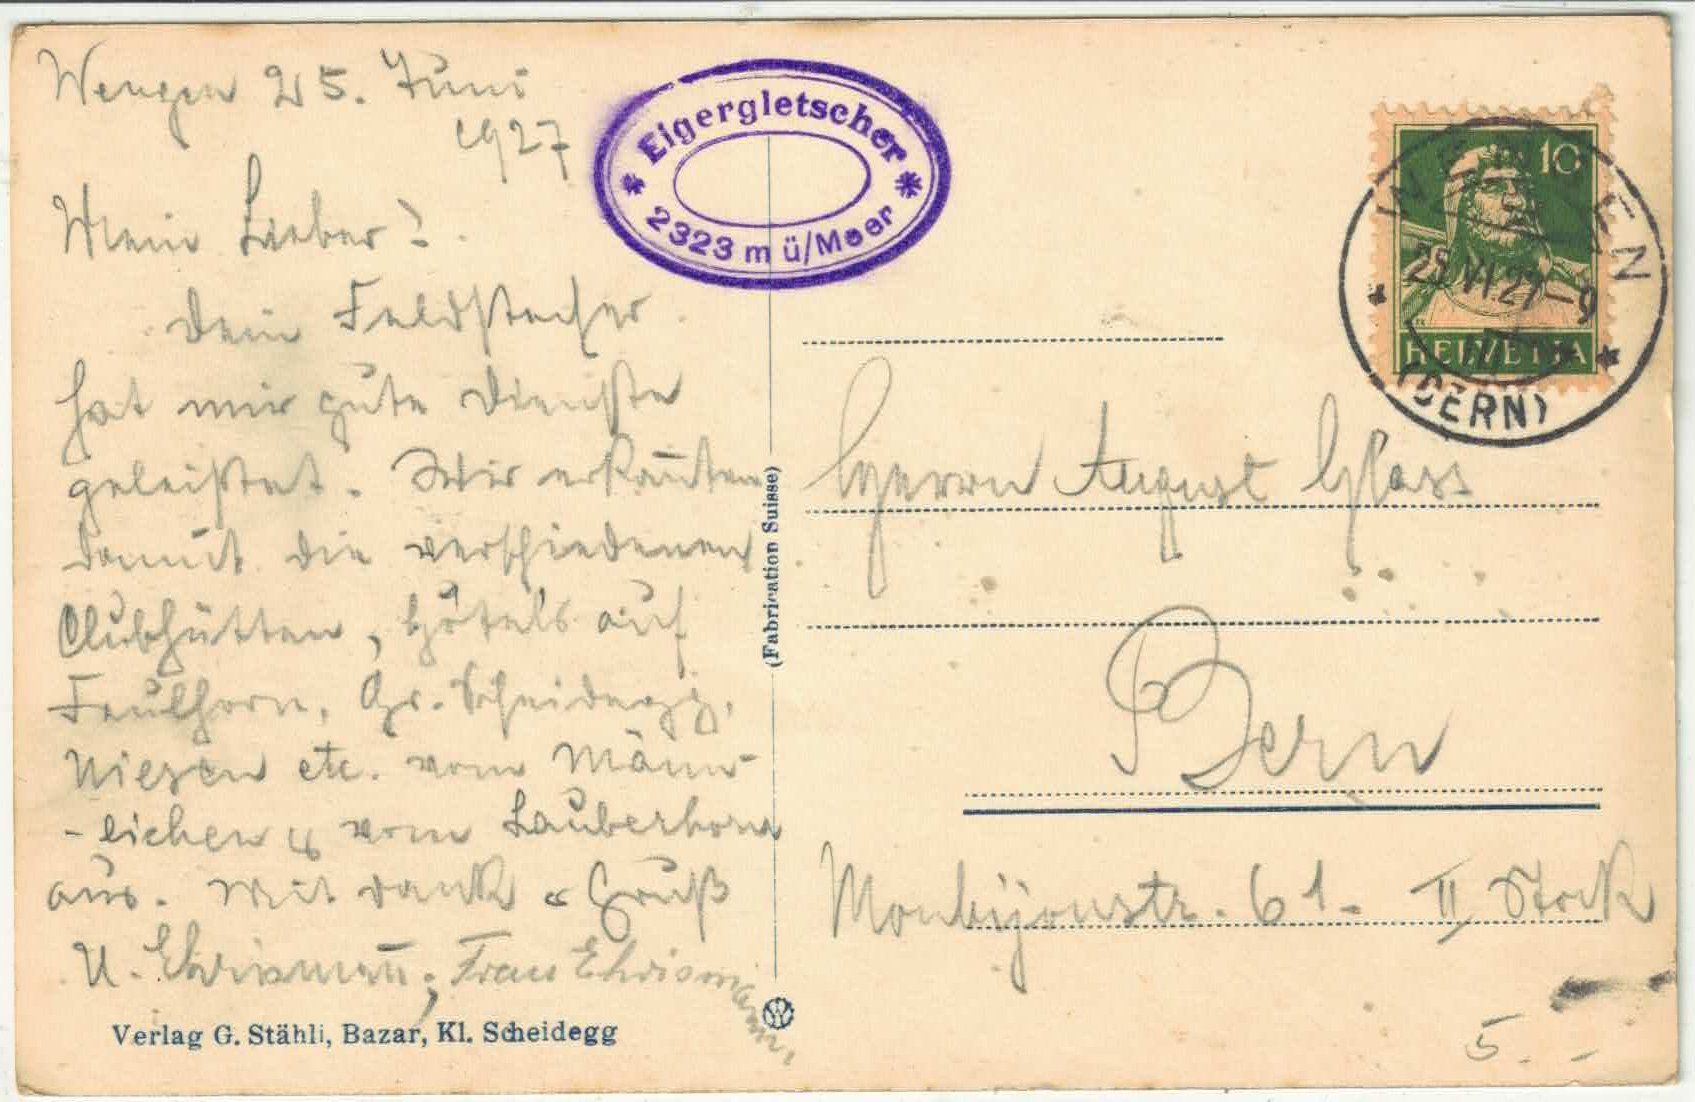 Wengen 25. Juni
1927
Mein Lieber!
Dein Feldstecher
hat mir gute Dienste
geleistet. Wir erkannten
damit die verschiedenen
Clubhütten, Hôtels auf
Faulhorn, Gr. Scheidegg,
Niesen etc. vom Männ-
-lichen u vom Lauberhorn
aus. Mit Dank u Gruß
U. Ehrismann, Frau Ehrismann.
Verlag G. Stähli, Bazar, Kl. Scheidegg
Eigergletscher
2323 m ü/Meer
(Fabrication Suisse)
10
HELVETIA
WENGEN
25.VI.27-9
(BERN)
Herrn August Glass
Bern
Monbijoustr. 61. II Stock
5.-